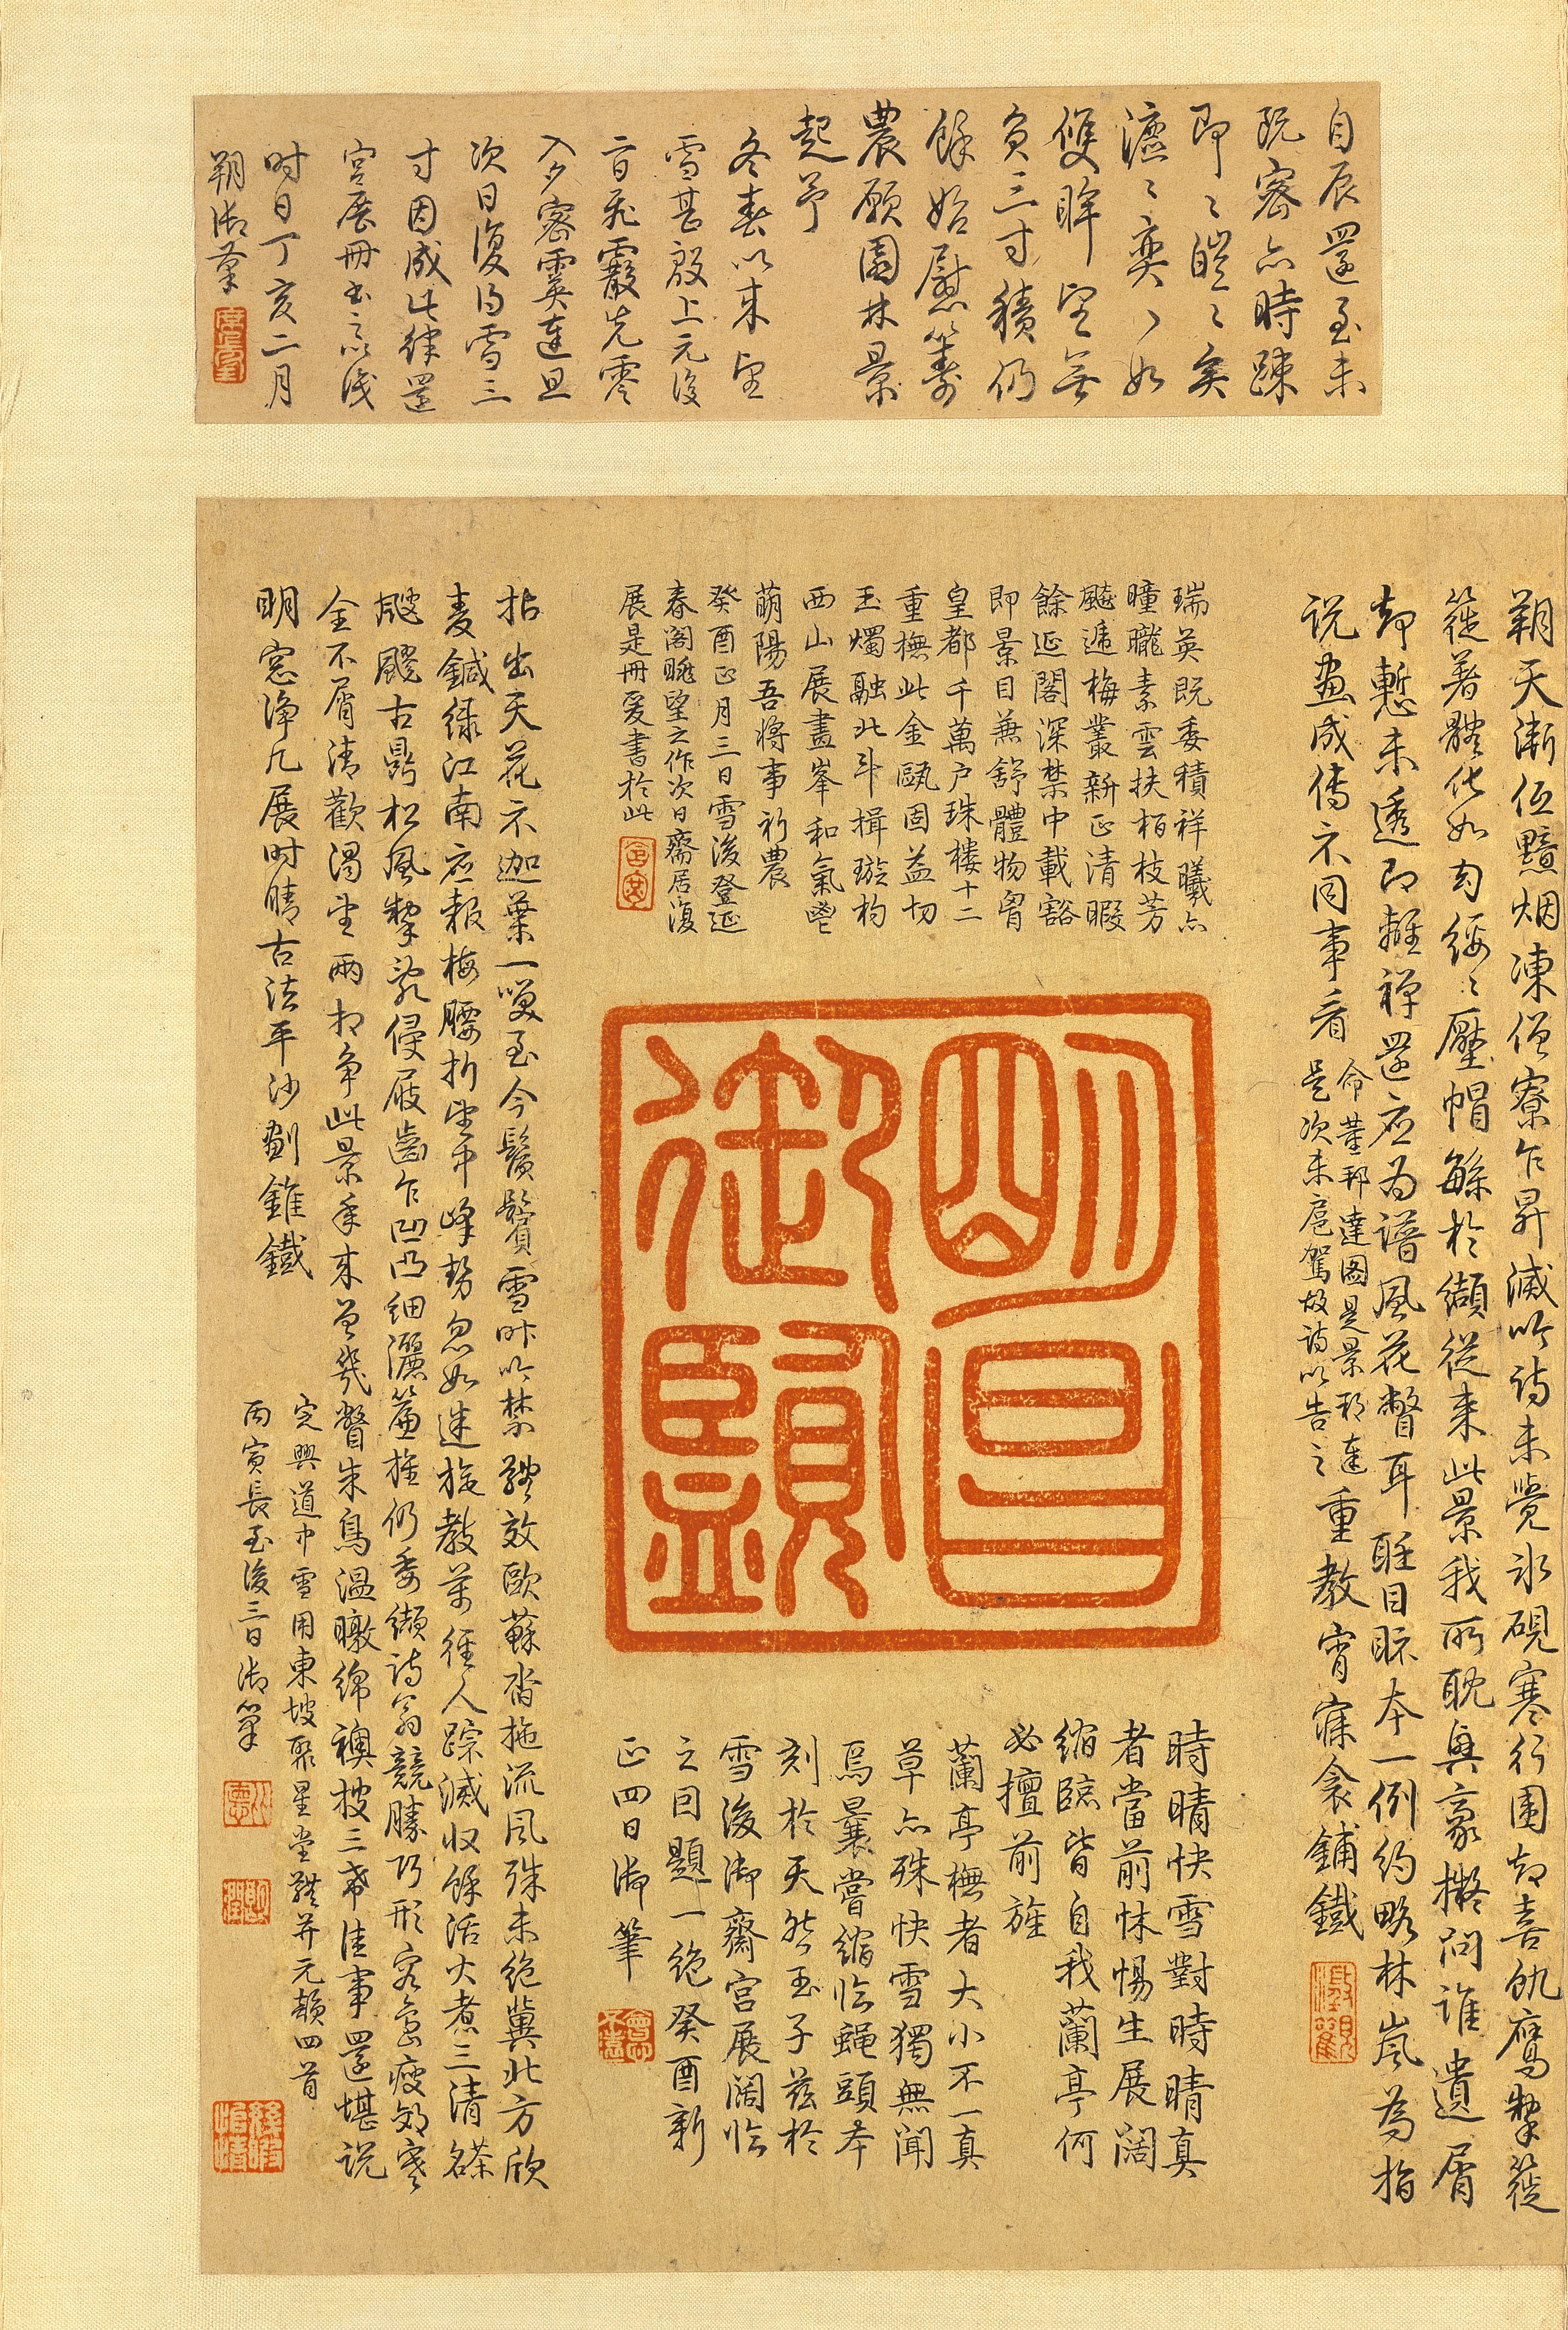 自辰還至未
既密亦時疎
即〻皚〻矣
瀌〻奕〻如
雙眸望無
負三寸積仍
餘始慰籌
農願園林景
起予
冬春以來望
雪甚殷上元後
二日飛霰先零
入夕密霙達旦
次日復得雪三
寸因成此律還
宮展冊書之以識
時日丁亥二月
朔御筆
朔天漸低黯烟凍僧寮乍昇滅吟詩未覺冰硯寒行圍却喜飢鷹掣簁
簁著體化如勻綏〻壓帽餘於纈從来此景我所耽興豪擬問誰遺屑
却慙未透即離禪還應為譜風花瞥耳聽目眎本一例約略林嵐為指
説畫成傳示同事看
命董邦達圖是景邦達
是次未扈駕故詩以告之
重教宵寐衾鋪鐵
瑞英既委積祥曦亦
曈曨素雲扶栢枝芳
飈遞梅叢新正清暇
餘延閣深禁中載豁
即景目兼舒體物胷
皇都千萬户珠樓十二
重撫此金甌固益切
玉燭融北斗揖璇杓
西山展畫峯和氣鬯
萌陽吾將事祈農
癸酉正月三日雪後登延
春閣眺望之作次日齋居復
展是冊爰書於此
明昌
御覽
時晴快雪對時晴真
者當前怵惕生展濶
縮臨皆自我蘭亭何
必擅前旌
蘭亭橅者大小不一真
草亦殊快雪獨無聞
焉曩嘗縮臨蠅頭本
刻於天然玉子兹於
雪後御齋宫展濶臨
之因題一絶癸酉新
正四日御筆
拈出天花示迦葉一噗至今鬚鬢雪昨吟禁體效歐蘇沓拖流風殊未絶冀北方欣
麦鍼緑江南應報梅腰折望中峰勢忽如迷旋教萬徑人踪滅收餘活火煮三清茶名
颼飀古鼎松風掣亂侵屐齒乍凹凸細灑簾旌仍委纈詩翁競勝巧形容島瘦郊寒
全不屑清歡濁坐兩相争此景年来曾幾瞥朱鳥温暾綿襖披三希佳事還堪説
明窓浄几展時晴古法平沙劃錐鐵
定興道中雪用東坡聚星堂體并元韻四首
丙寅長至後三日御筆